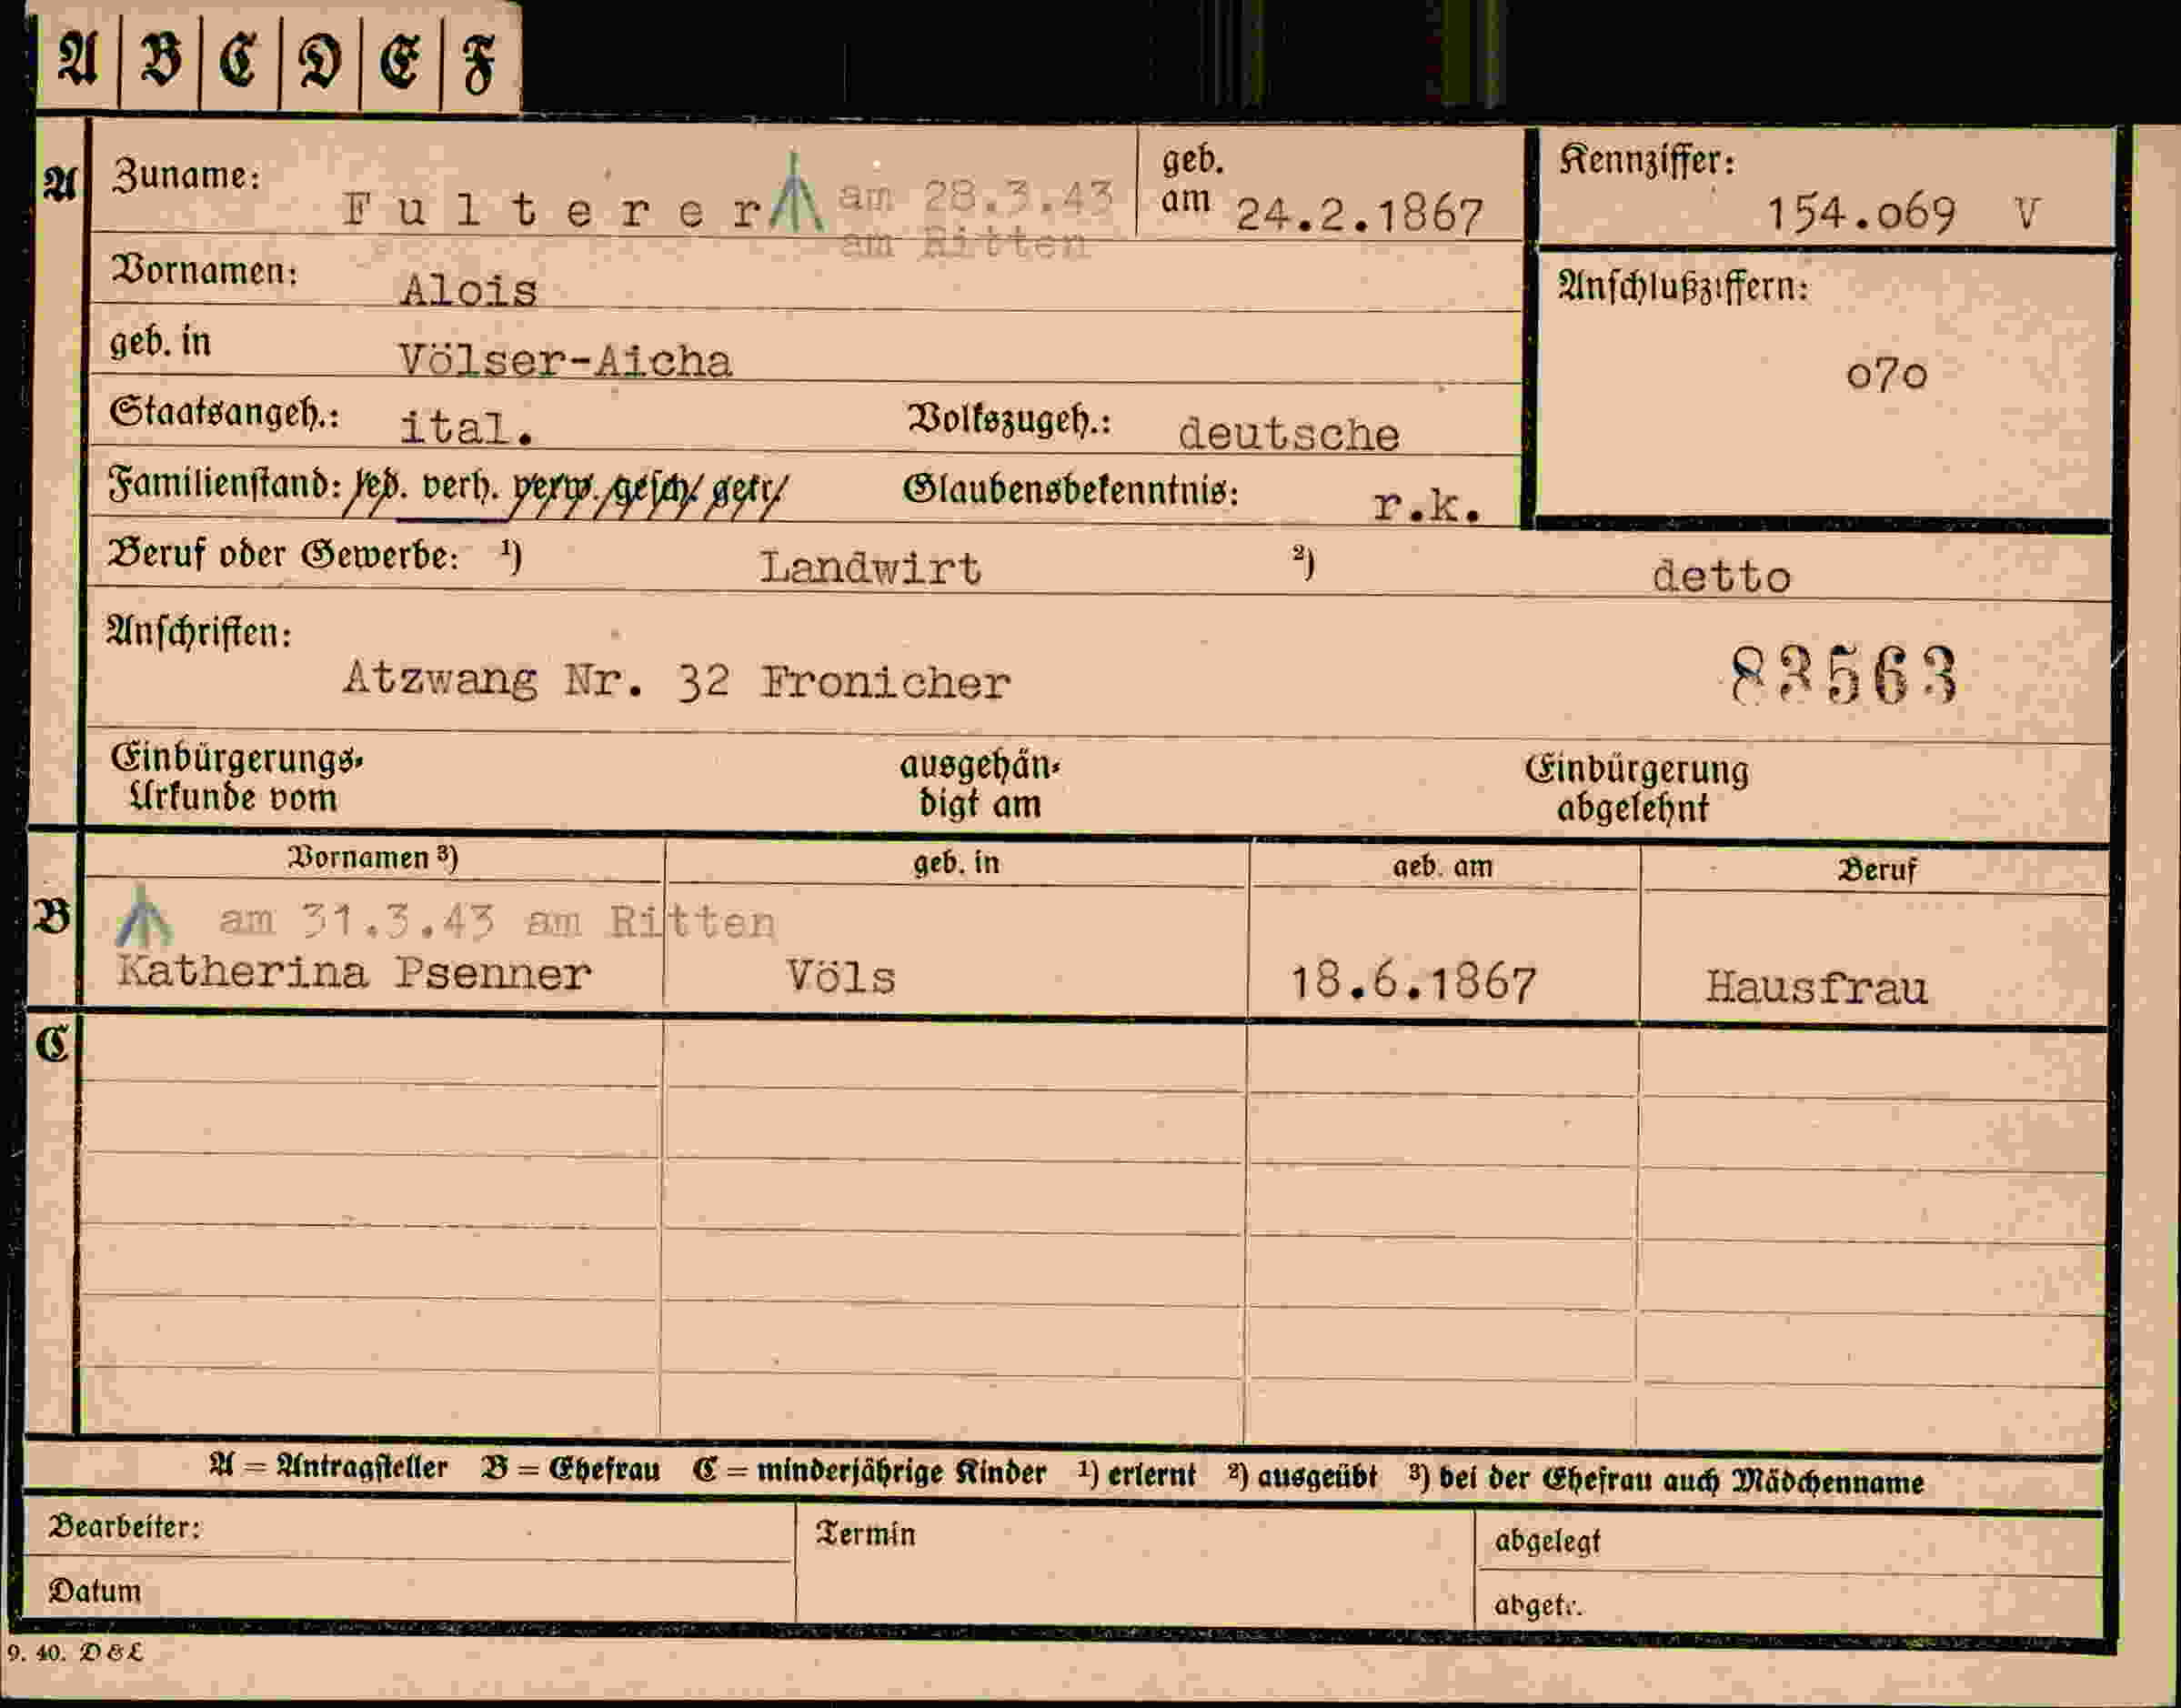 A B C D E F
A Zuname: Fulterer am 28.3.43 geb. am 24.2.1867 Kennziffer: 154.o69 V
am Ritten
Vornamen: Alois Anschlußziffern:
geb. in Völser-Aicha o7o
Staatsangeh.: ital. Volkszugeh.: deutsche
Familienstand: led. verh. verw. gesch. getr. Glaubensbekenntnis: r.k.
Beruf oder Gewerbe: ¹) Landwirt ²) detto
Anschriften:
Atzwang Nr. 32 Fronicher 83563
Einbürgerungs- ausgehän- Einbürgerung
Urkunde vom digt am abgelehnt
Vornamen ³) geb. in geb. am Beruf
B am 31.3.43 am Ritten
Katherina Psenner Völs 18.6.1867 Hausfrau
C
A = Antragsteller B = Ehefrau C = minderjährige Kinder ¹) erlernt ²) ausgeübt ³) bei der Ehefrau auch Mädchenname
Bearbeiter: Termin abgelegt
Datum abgetr.
9. 40. D & L